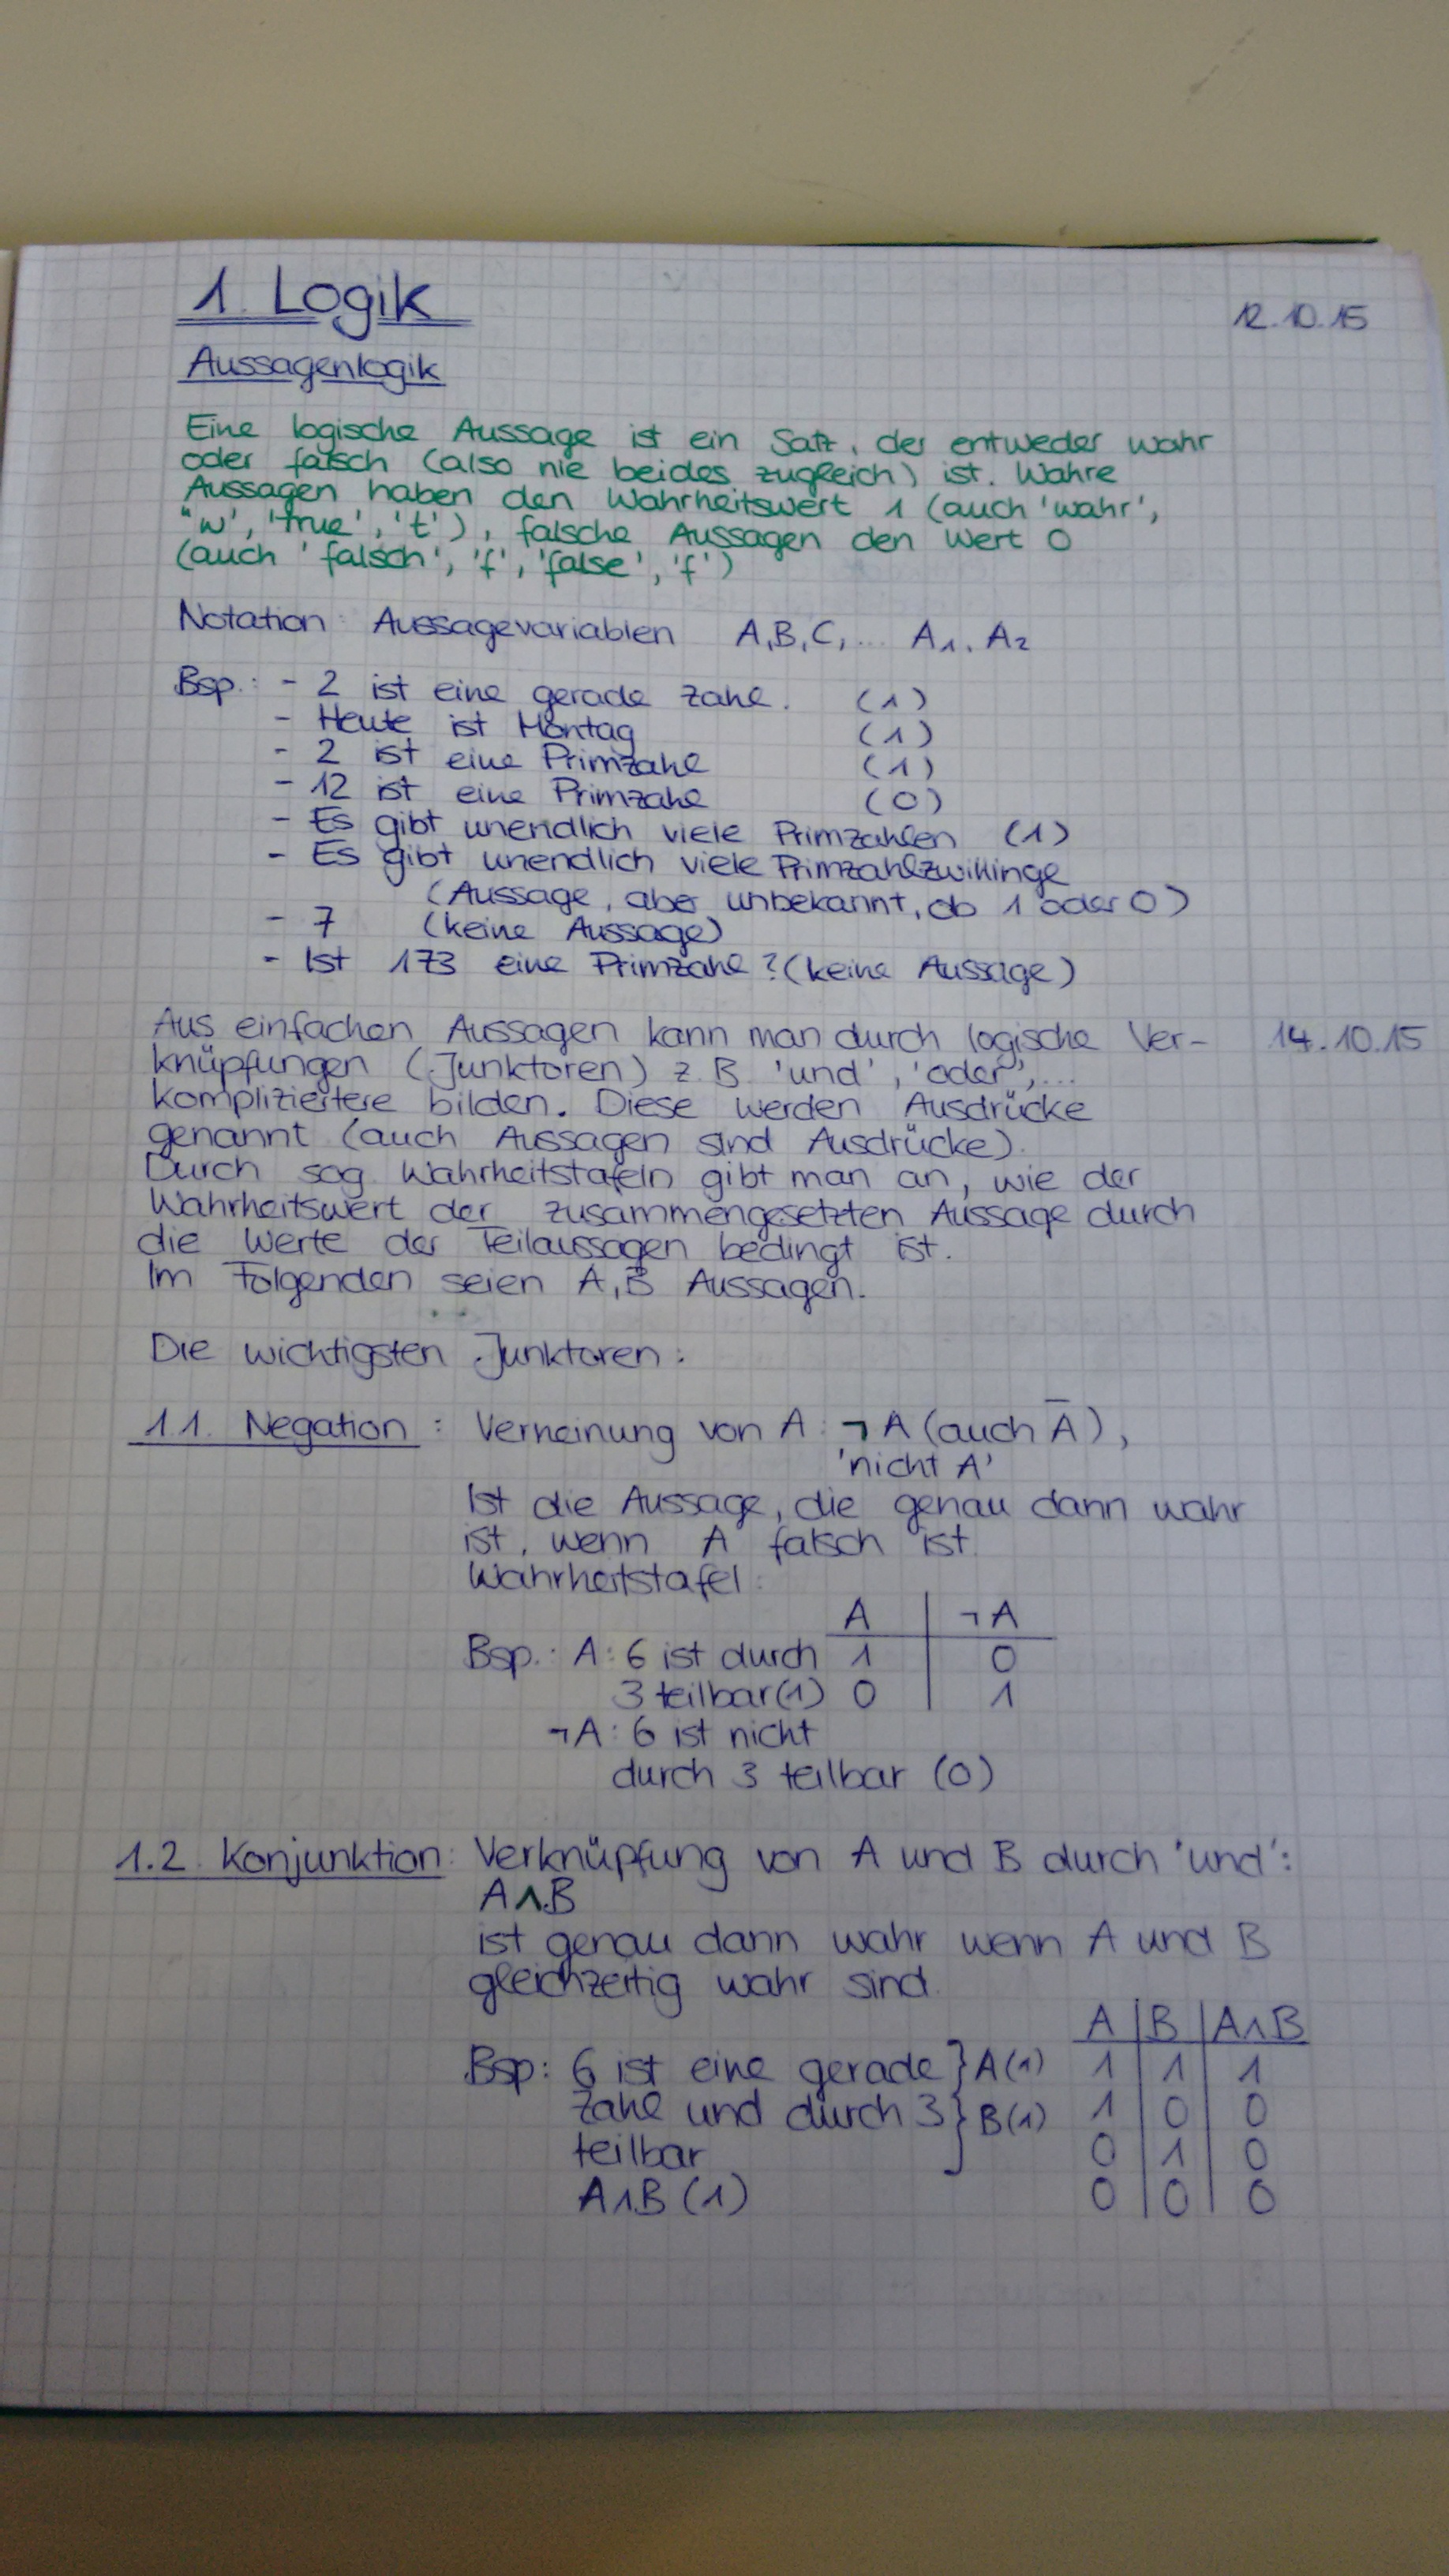 1. Logik
12.10.15
Aussagenlogik
Eine logische Aussage ist ein Satz, der entweder wahr
oder falsch (also nie beides zugleich) ist. Wahre
Aussagen haben den Wahrheitswert 1 (auch 'wahr',
"w', 'true', 't'), falsche Aussagen den Wert 0
(auch 'falsch', 'f', 'false', 'f')
Notation: Aussagevariablen A, B, C, ... A₁, A₂
Bsp.: - 2 ist eine gerade Zahl. (1)
- Heute ist Montag (1)
- 2 ist eine Primzahl (1)
- 12 ist eine Primzahl (0)
- Es gibt unendlich viele Primzahlen (1)
- Es gibt unendlich viele Primzahlzwillinge
(Aussage, aber unbekannt, ob 1 oder 0)
- 7 (keine Aussage)
- Ist 173 eine Primzahl? (keine Aussage)
Aus einfachen Aussagen kann man durch logische Ver- 14.10.15
knüpfungen (Junktoren) z.B. 'und', 'oder', ...
kompliziertere bilden. Diese werden Ausdrücke
genannt (auch Aussagen sind Ausdrücke).
Durch sog. Wahrheitstafeln gibt man an, wie der
Wahrheitswert der zusammengesetzten Aussage durch
die Werte der Teilaussagen bedingt ist.
Im Folgenden seien A, B Aussagen.
Die wichtigsten Junktoren:
1.1. Negation: Verneinung von A: ¬A (auch A̅),
'nicht A'
Ist die Aussage, die genau dann wahr
ist, wenn A falsch ist.
Wahrheitstafel:
A | ¬A
Bsp.: A: 6 ist durch 1 | 0
3 teilbar (1) 0 | 1
¬A: 6 ist nicht
durch 3 teilbar (0)
1.2. Konjunktion: Verknüpfung von A und B durch 'und':
A∧B
ist genau dann wahr wenn A und B
gleichzeitig wahr sind.
A | B | A∧B
Bsp: 6 ist eine gerade } A(1) 1 | 1 | 1
Zahl und durch 3 } B(1) 1 | 0 | 0
teilbar 0 | 1 | 0
A∧B (1) 0 | 0 | 0